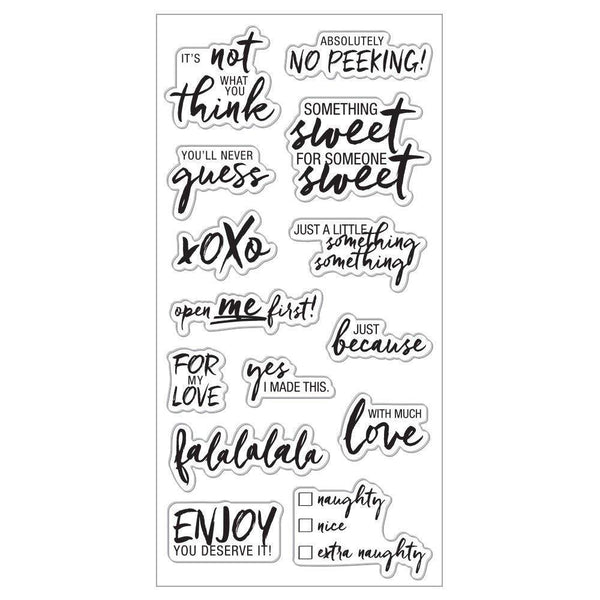 IT'S not
WHAT
YOU
think
ABSOLUTELY
NO PEEKING!
SOMETHING
sweet
FOR SOMEONE
sweet
YOU'LL NEVER
guess
xoxo
JUST A LITTLE
something
something
open me first!
JUST
because
FOR
MY
LOVE
yes
I MADE THIS.
WITH MUCH
love
falalalala
ENJOY
YOU DESERVE IT!
naughty
nice
extra naughty